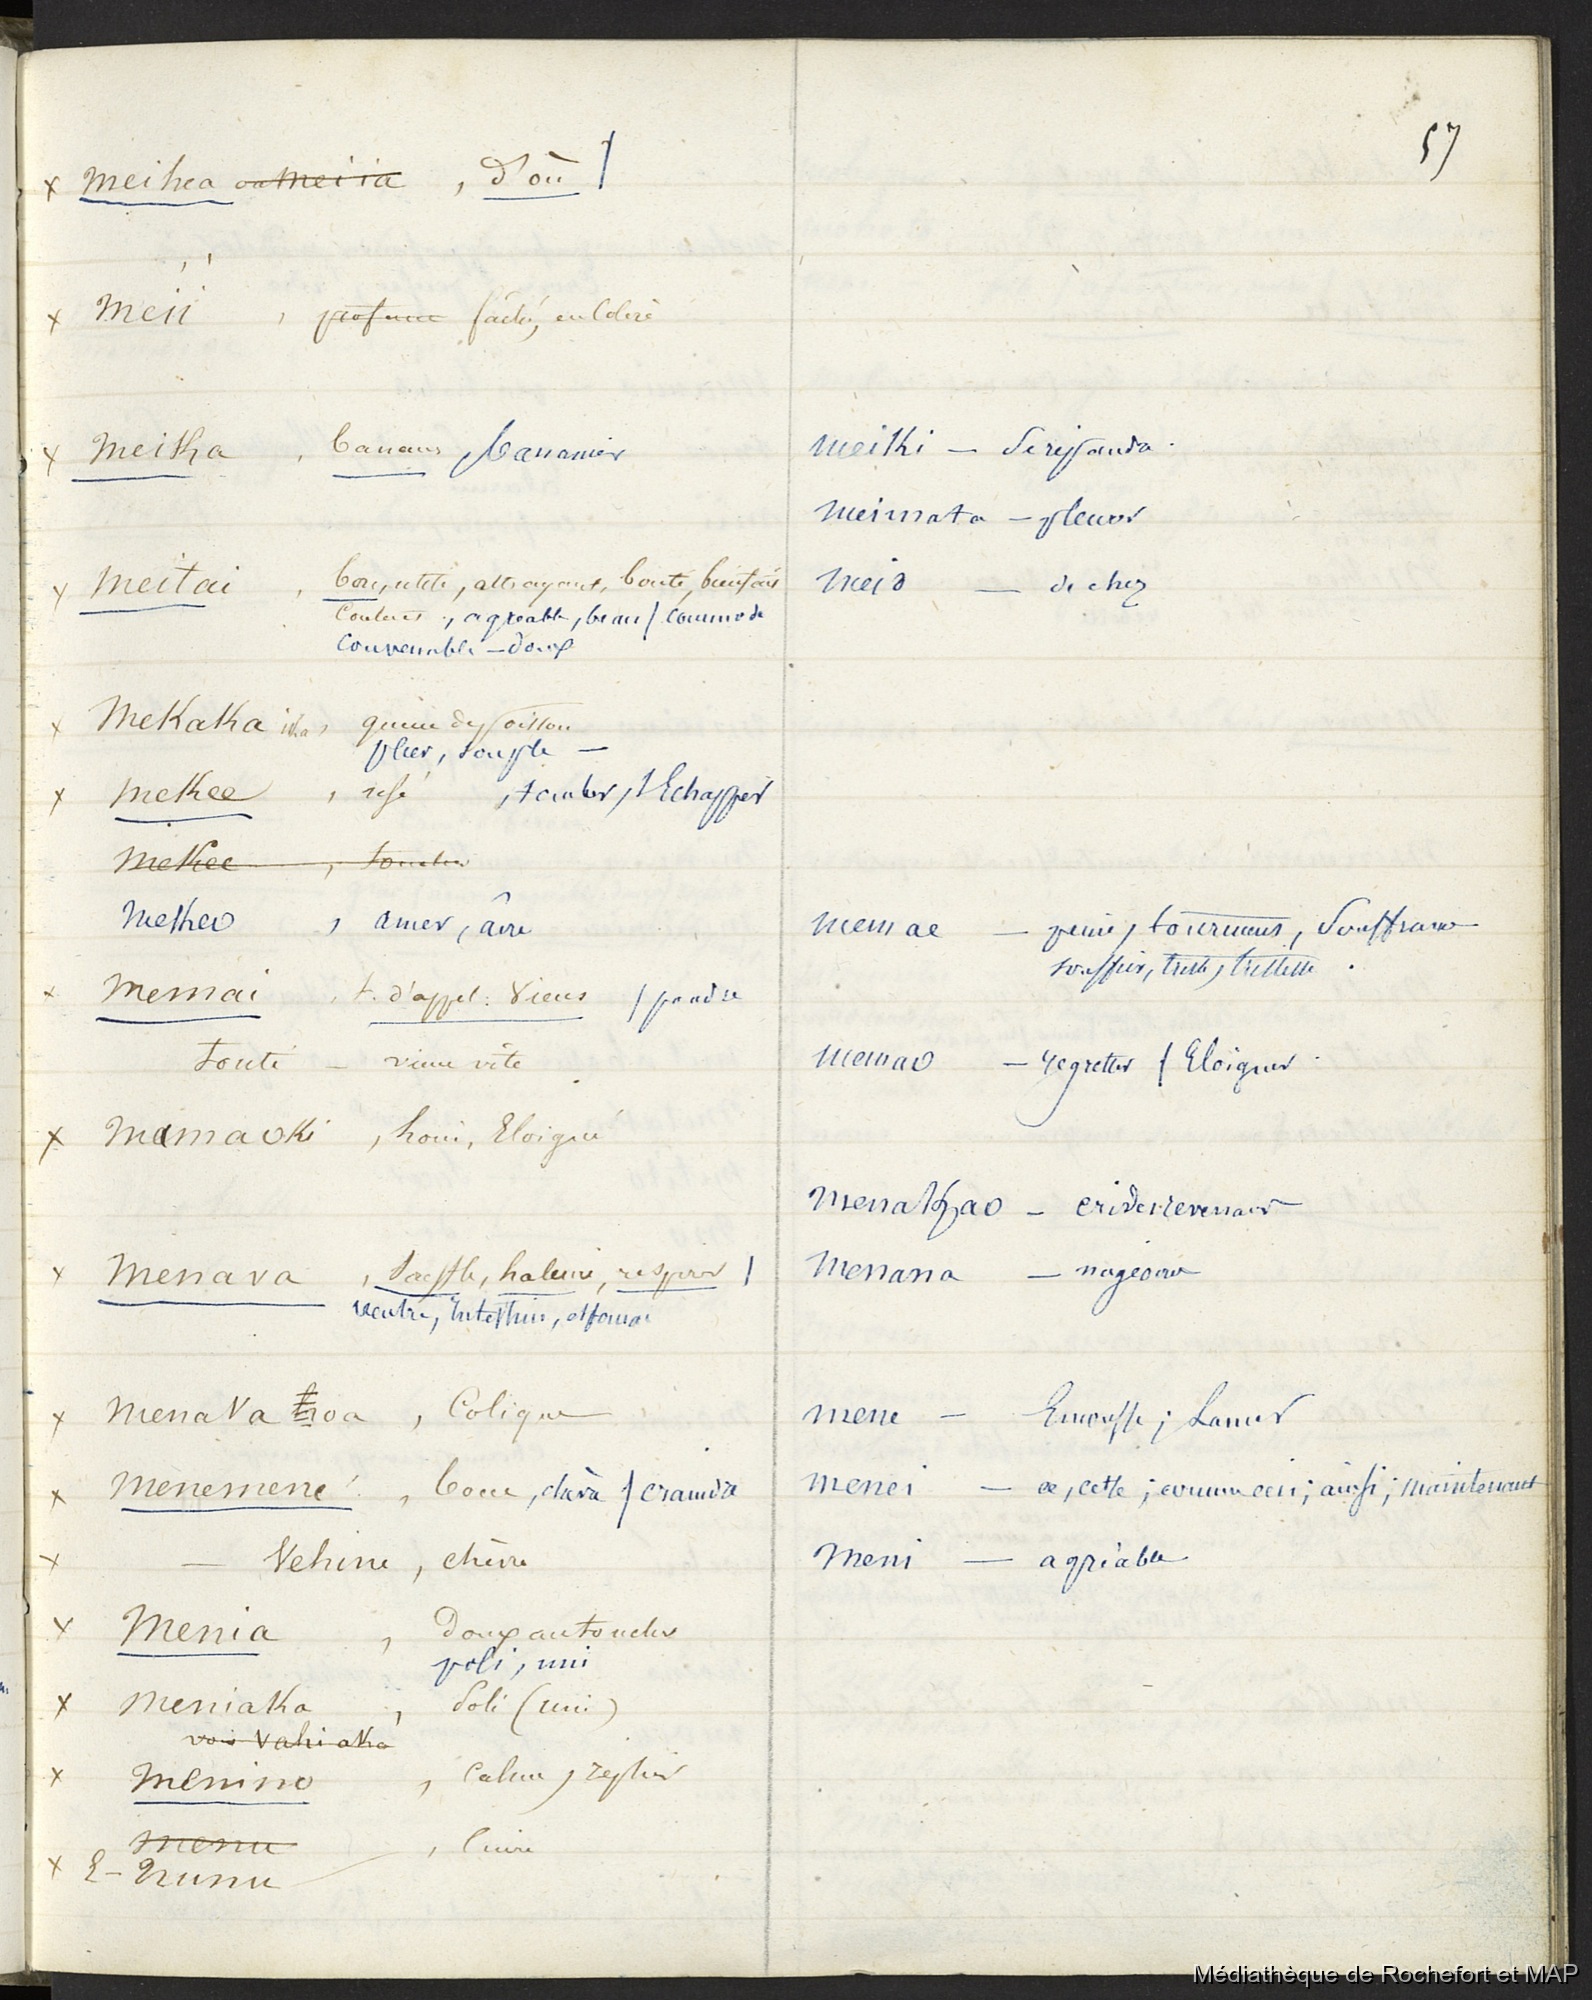 57
x meihea ou meiia , d'où /
x meii , fâché, en colère
x meika , banane, bananier
x meitai , bon, utile, attrayant, bonté, bienfait
, agréable, beau / commode
convenable – doux
x mekaka ika , queue de poisson
plier, souple –
x mekee , , tomber, / Echapper
mekee , toucher
mekeo , amer, âcre
x memai , t. d'appel : viens / pendre
Touti – viens vite
x mamaoki , honi, Eloigné
x menava , souffle, haleine, respirer /
ventre, intestins, estomac
x menava hoa , Colique
x menemene , bouc, chèvre /
x — Vehine , chèvre
x menia , Doux au toucher
poli, uni
x meniaka , Poli (uni)
voir Vahiaka
x menino , calme,
menu
x E- Nunu , cuire
meiki – Se répandre .
meimata – pleurer
meiò — de chez
memae – peine, tourment, Souffrance
souffrir, triste, tristesse .
memao – regretter / Eloigner .
menakao –
menana – nageoire
mene – Emoussé ;
menei – ce, cette ; comme ceci ; ainsi ; maintenant
meni — agréable
Médiathèque de Rochefort et MAP